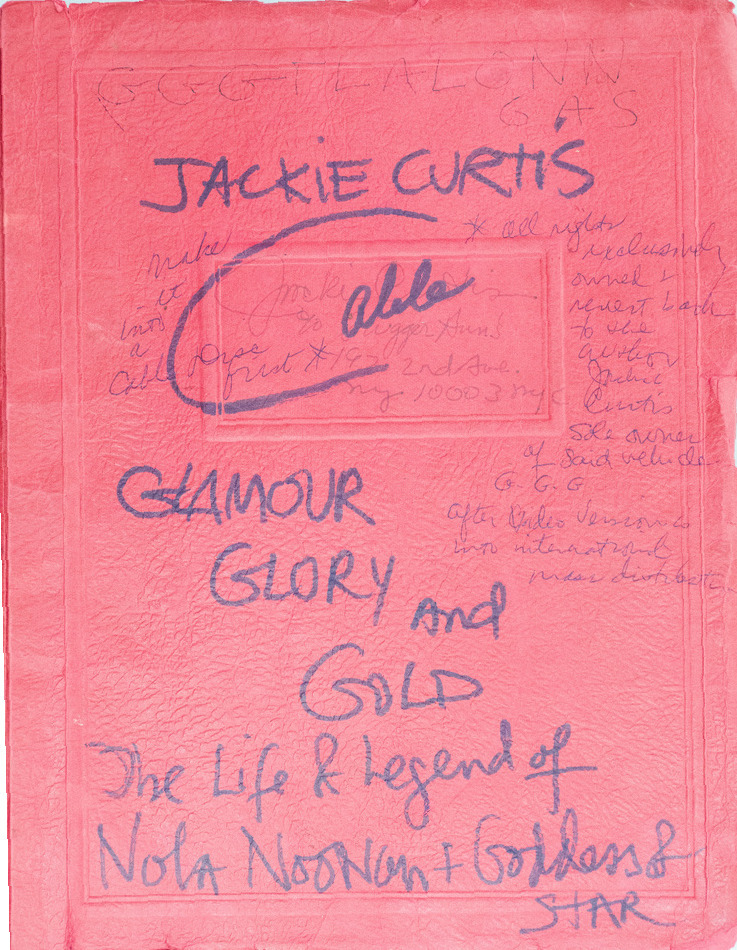 GGGILALONN
GAS
JACKIE CURTIS
* all rights
exclusively
owned +
revert back
to the
author
Jackie
Curtis
sole owner
of said vehicle
G.G.G
after Video Version is
into international
mass
make
it
into
a
Cable
first *
Cable
Jackie
c/o Slugger Ann's
192 2nd Ave.
ny 10003 nyc
GLAMOUR
GLORY
and
GOLD
The Life & Legend of
Nola Noonan + Goddess &
STAR